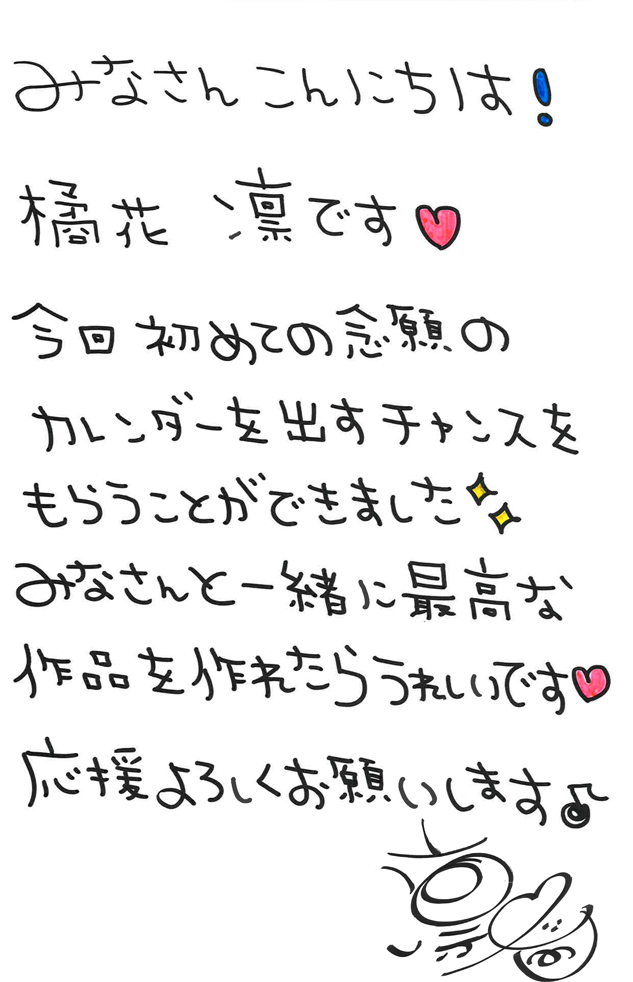 みなさん こんにちは!
橘花 凛です♥
今回 初めての念願の
カレンダーを出すチャンスを
もらうことができました✨
みなさんと一緒に最高な
作品を作れたらうれしいです♥
応援よろしくお願いします♪